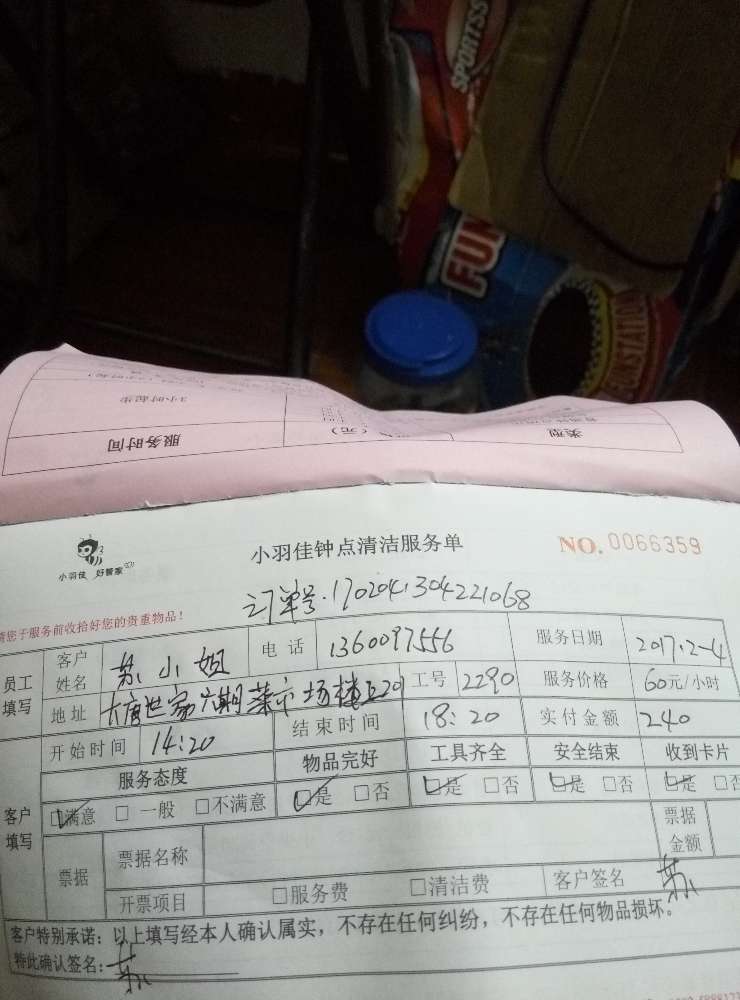 SPORTSS
FUN
FUNSTATION
3小时起步
服务时间
(元)
类型
小羽佳 好管家
小羽佳钟点清洁服务单
NO. 0066359
订单号:1702041304221068
请您于服务前收拾好您的贵重物品!
员工填写 客户姓名 苏小姐 电话 1360097556 服务日期 2017.2-4
地址 大唐世家六期菜市场楼上220 工号 2290 服务价格 60元/小时
开始时间 14:20 结束时间 18:20 实付金额 240
客户填写 服务态度 物品完好 工具齐全 安全结束 收到卡片
□满意 □一般 □不满意 □是 □否 □是 □否 □是 □否 □是 □否
票据 票据名称 票据金额
开票项目 □服务费 □清洁费 客户签名 苏
客户特别承诺:以上填写经本人确认属实,不存在任何纠纷,不存在任何物品损坏。
特此确认签名:苏